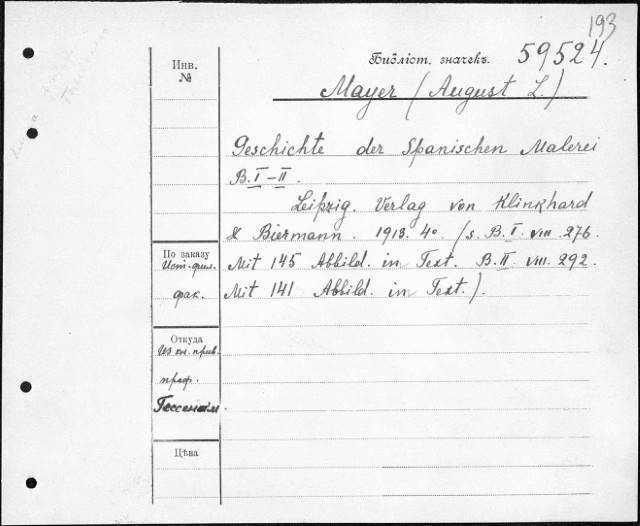 193
Инв.
№
Библіот. значекъ. 59524.
Mayer (August L.)
Geschichte der Spanischen Malerei
B. I–II.
Leipzig. Verlag von Klinkhard
& Biermann. 1913. 4o. (s. B. I. VIII. 276.
Mit 145 Abbild. in Text. B. II. VIII. 292.
Mit 141 Abbild. in Text.).
По заказу
Ист-фил.
фак.
Откуда
Из кн. прив.
проф.
Цѣна